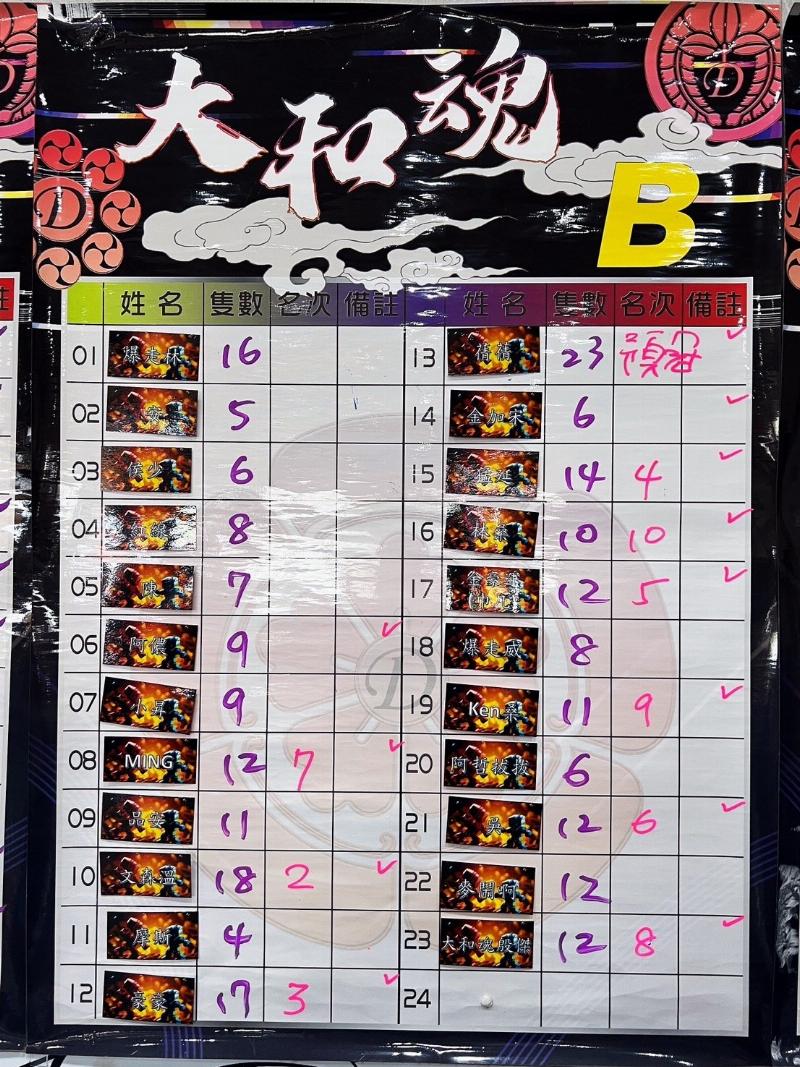 大和魂
D
D
B
姓名 隻數 名次 備註 姓名 隻數 名次 備註
01 爆走林 16
02 5
03 侯少 6
04 8
05 陳 7
06 阿儂 9 ✓
07 小昇 9
08 MING 12 7 ✓
09 品安 11
10 文森溫 18 2 ✓
11 摩斯 4
12 豪豪 17 3 ✓
13 倩倩 23 預备 ✓
14 金加宋 6 ✓
15 14 4 ✓
16 10 10 ✓
17 12 5 ✓
18 爆走威 8
19 Ken桑 11 9 ✓
20 阿哲拔拔 6
21 吳 12 6 ✓
22 麥鬧啊 12
23 大和魂殷傑 12 8 ✓
24